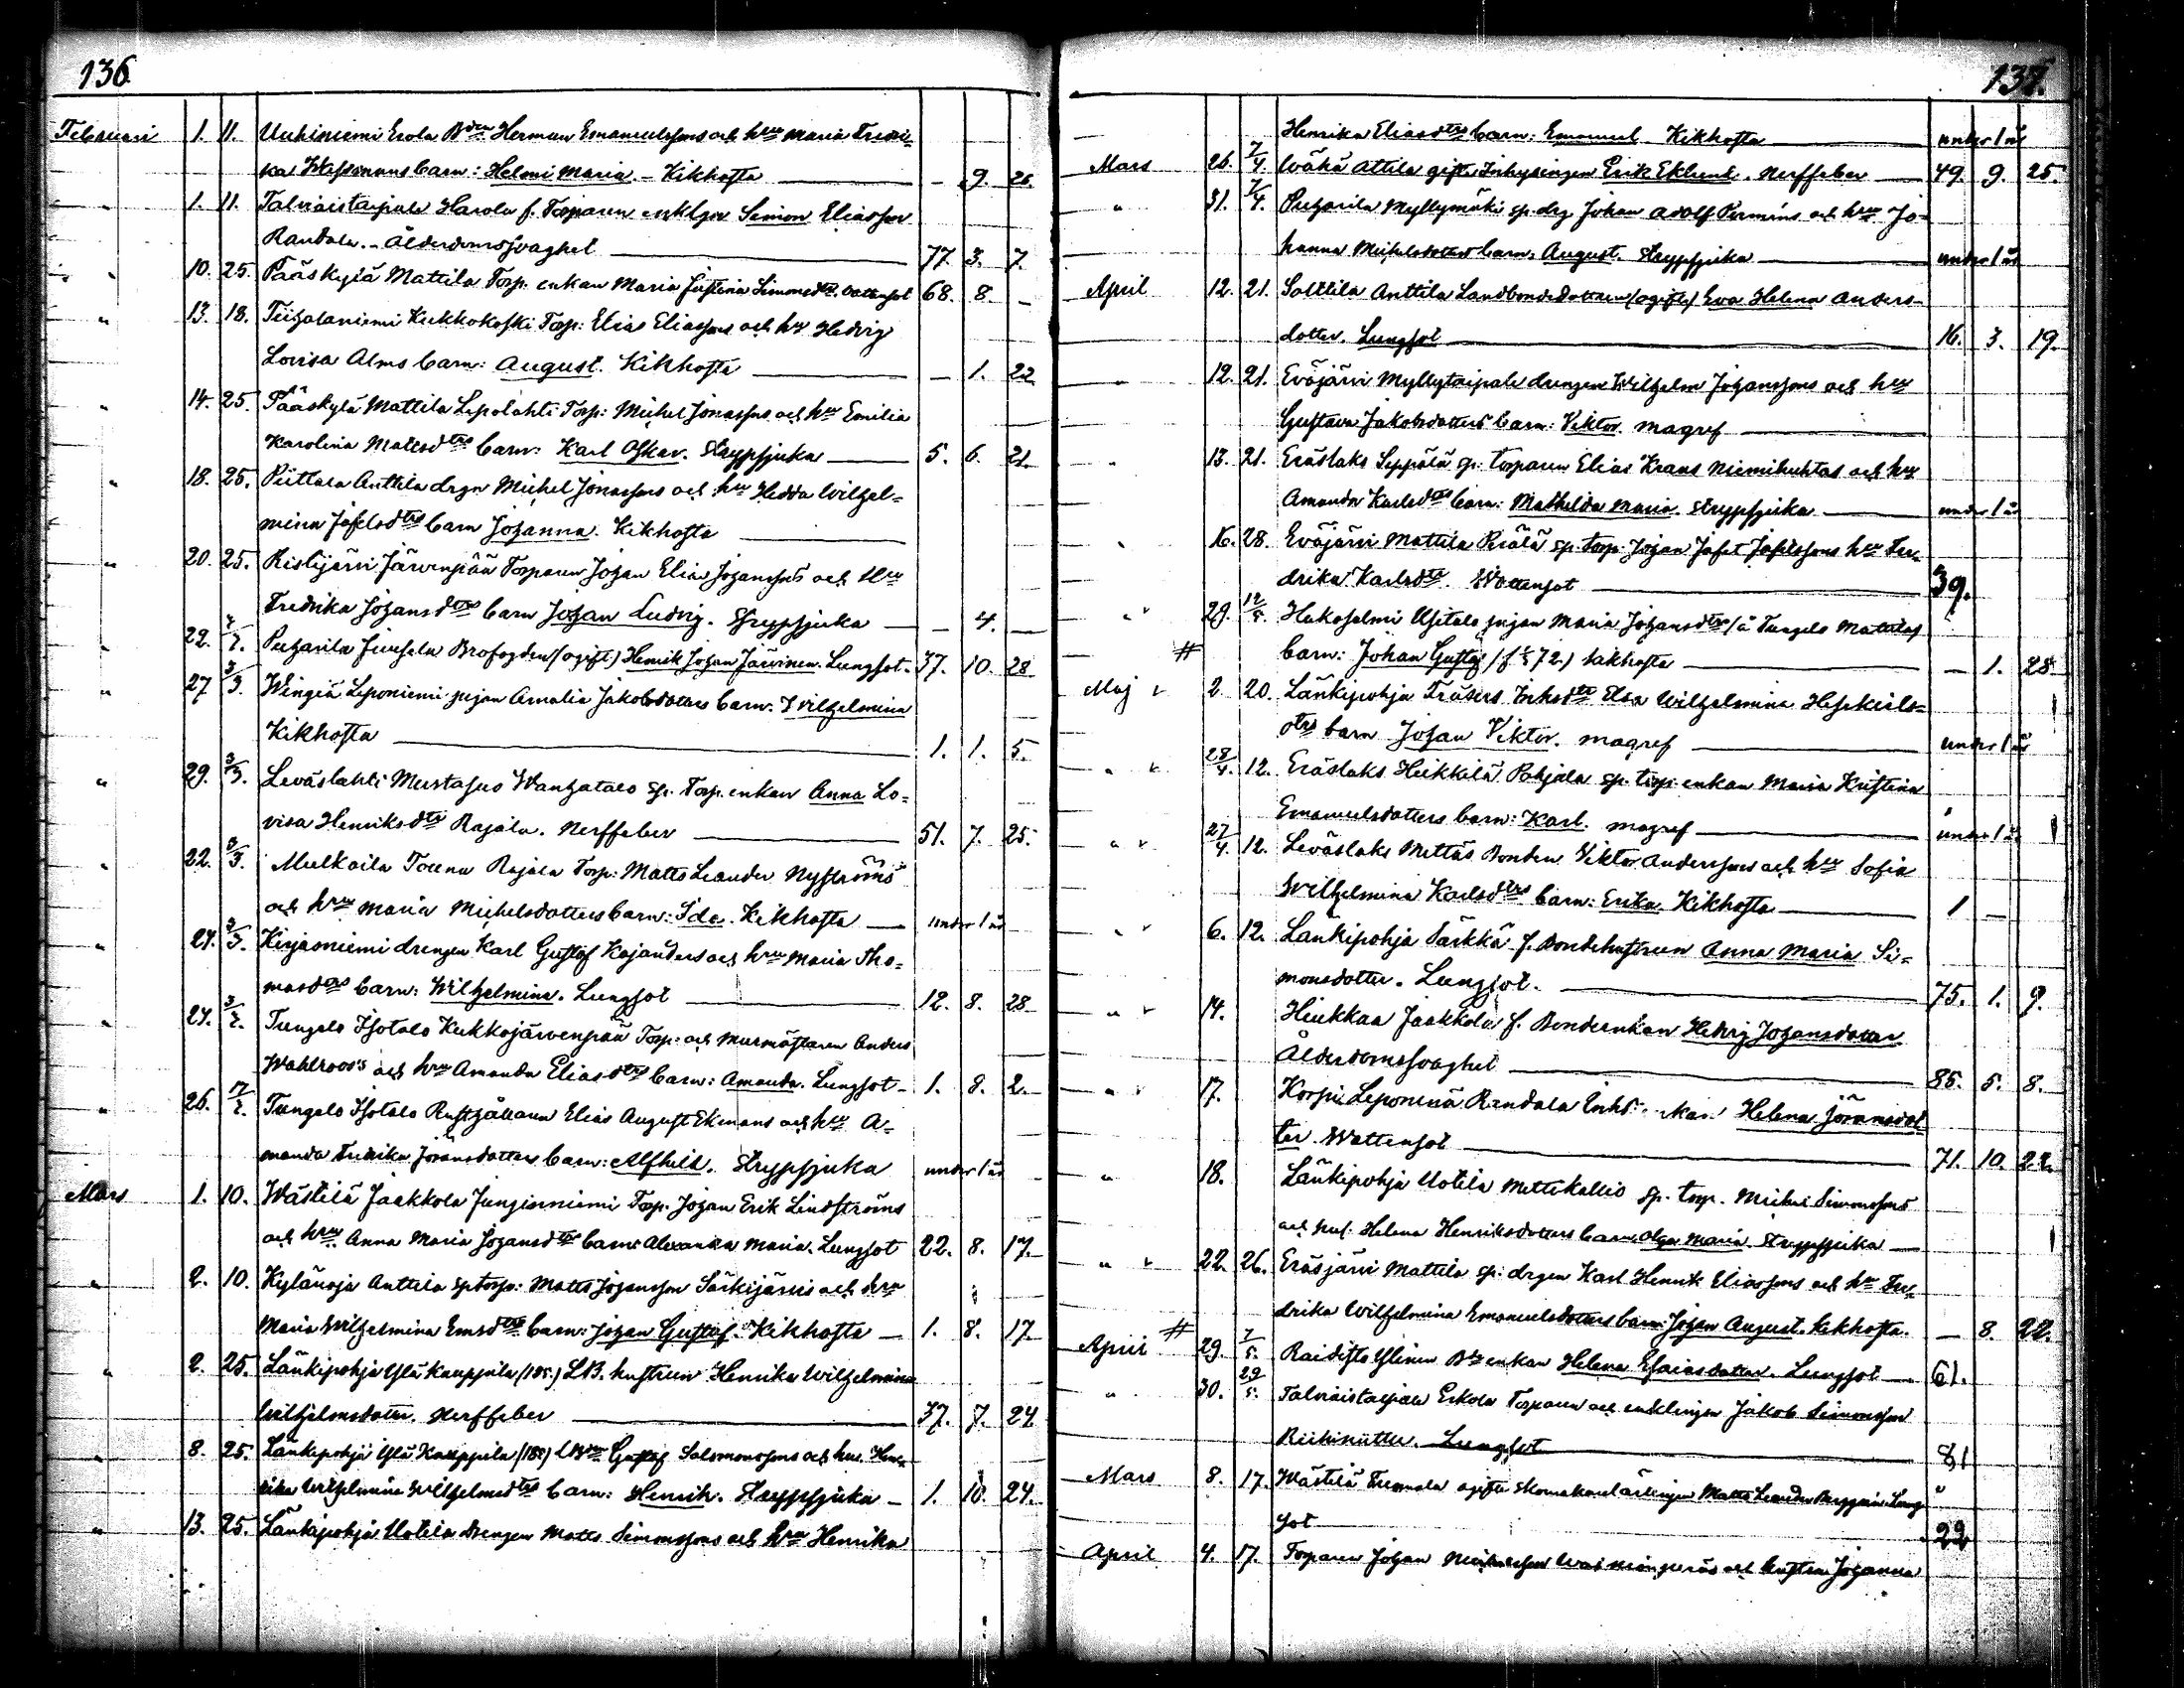 136.
Februari 1. 11. Uuhiniemi Erola Bden Herman Emanuelssons och hru Maria Fredri-
ka Wessmans barn: Helmi Maria. - Kikhosta — 9. 26.
" 1. 11. Talviaistaipale Harola f. Torparen enklgn Simon Eliasson
Randala. - Ålderdomssvaghet — 77. 3. 7.
" 10. 25. Pääskylä Mattila Torp. enkan Maria Justina Simonsdtr. Vattensot 68. 8. —
" 13. 18. Tiihalaniemi Kukkokoski Torp: Elias Eliassons och hru Hedvig
Lovisa Alms barn: August. Kikhosta — 1. 22
" 14. 25. Pääskylä Mattila Lepolahti Torp: Michel Jonassons och hru Emilia
Karolina Mattsdtrs barn: Karl Oskar. Strypsjuka — 5. 6. 21.
" 18. 25. Piittala Anttila drgn Michel Jonassons och hru Hedda Wilhel=
mina Josefsdtrs barn Johanna. Kikhosta —
" 20. 25. Ristijärvi Järvenpää Torparen Johan Elia Johanssons och Hru
Fredrika Johansdtrs barn Johan Ludvig. Strypsjuka — — 4. —
" 22. 2/3. Puharila Juusela Brofogden (ogift) Henrik Johan Järvinen. Lungsot. 37. 10. 28
" 27 3/3. Wingiä Leponiemi pigan Amalia Jakobsdotters barn: Wilhelmina
Kikhosta — 1. 1. 5.
" 29. 3/3. Leväslahti Mustasuo Wanhatalo sp. Torp. enkan Anna Lo=
visa Henriksdtr Rajala. Nerffeber — 51. 7. 25.
" 22. 3/3. Mulkoila Torenu Rajala Torp: Matts Leander Nyströms
och hru Maria Michelsdotters barn: Ida. Kikhosta — under 1 år
" 24. 3/3. Kirjasniemi drengen Karl Gustaf Kajanders och hru Maria Tho=
masdtrs barn: Wilhelmina. Lungsot — 12. 8. 28
" 24. 3/3. Tungelo Isotalo Kukkojärvenpää Torp. och murmästaren Anders
Wahlroos's och hru Amanda Eliasdtrs barn: Amanda. Lungsot — 1. 8. 2.
" 26. 17/3. Tungelo Isotalo Rusthållaren Elias August Ekmans och hru A=
manda Fredrika Jöransdotters barn: Alfhild. Strypsjuka under 1 år
Mars 1. 10. Wästilä Jaakkola Junginniemi Torp. Johan Erik Lindströms
och hru Anna Maria Johansdtrs barn Alexandra Maria. Lungsot 22. 8. 17.
" 2. 10. Kylänoja Anttila sp torp: Matts Johansson Särkijärvis och hru
Maria Wilhelmina Emsdtrs barn: Johan Gustaf. Kikhosta — 1. 8. 17.
" 2. 25. Länkipohja Ylä Kauppila (185.) LB. hustrun Henrika Wilhelmina
Wilhelmsdotter. Nerffeber — 37. 7. 24
" 8. 25. Länkipohja Ylä Kauppila (185) LBden Gustaf Salomonssons och hru Hen-
rika Wilhelmina Wilhelmsdtrs barn: Henrik. Strypsjuka — 1. 10. 24.
" 13. 25. Länkipohja Uotila drengen Matts Simonssons och hru Henrika
137.
Henrika Eliasdtrs barn: Emanuel Kikhosta — under 1 år
Mars 26. 7/4. Wähä Attila gifte Inhysingen Erik Eklund. Nerffeber — 49. 9. 25.
" 31. 7/4. Puharila Myllymäki sp. drg Johan Adolf Permins och hru Jo-
hanna Michelsdotters barn: August. Strypsjuka — under 1 år
April 12. 21. Salttila Anttila Landbondedottren (ogifte) Eva Helena Anders-
dotter. Lungsot — 16. 3. 19.
" 12. 21. Eväjärvi Myllytaipale drengen Wilhelm Johanssons och hru
Gustava Jakobsdotters barn: Viktor. magref —
" 13. 21. Eräslaks Seppälä sp. torparen Elias Krans Niemihuhtas och hru
Amanda Karlsdtrs barn: Mathilda Maria. Strypsjuka — under 1 år
" 16. 28. Eväjärvi Mattila Perälä sp. torp. Johan Jafet Jafetssons hru Fre-
drika Karlsdtr. Wattensot — 39.
" 29. 12/5. Hakosalmi Ylitalo pigan Maria Johansdtrs (å Tungelo Mattila)
# barn: Johan Gustaf (f. 72.) Kikhosta — — 1. 28
Maj 2. 20. Länkipohja Fräsers Inhsdtr Elsa Wilhelmina Heskiels=
dtrs barn Johan Viktor. magref — under 1 år
" 28/4. 12. Eräslaks Heikkilä Pohjala sp. torp: enkan Maria Kristina
Emanuelsdotters barn: Karl. magref — under 1 år
" 27/4. 12. Leväslaks Mettäs Bonden Viktor Anderssons och hru Sofia
Wilhelmina Karlsdtrs barn: Erika. Kikhosta — 1 —
" 6. 12. Länkipohja Särkkä f. Bondehustrun Anna Maria Si=
monsdotter. Lungsot. — 75. 1. 9.
" 14. Hiukkaa Jaakkola f. Bondenkan Hedvig Johansdotter
Ålderdomssvaghet — 85. 5. 8.
" 17. Korpi Leponenä Randala Inhs: Helena Jöransdot
ter Wattensot — 71. 10. 22.
" 18. Länkipohja Uotila Mettikallio sp. torp. Michel Simonssons
och hust. Helena Henriksdotters barn Olga Maria. Strypsjuka —
" 22. 26. Eräsjärvi Mattila sp: drgen Karl Henrik Eliassons och hru Fre-
drika Wilhelmina Emanuelsdotters barn: Johan August. Kikhosta. — 8. 22.
April # 29. 7/5. Raidisto Ylinen Bde enkan Helena Esaiasdotter. Lungsot — 61.
" 30. 29/5. Talviaistaipale Erkola Torparen och enklingen Jakob Simonsson
Riihiniittu. Lungsot — 81
Mars 8. 17. Wästilä Tuomola ogifte Skomakarelärlingen Matts Leander Lung
sot — 22
April 4. 17. Torparen Johan och hustrun Johanna